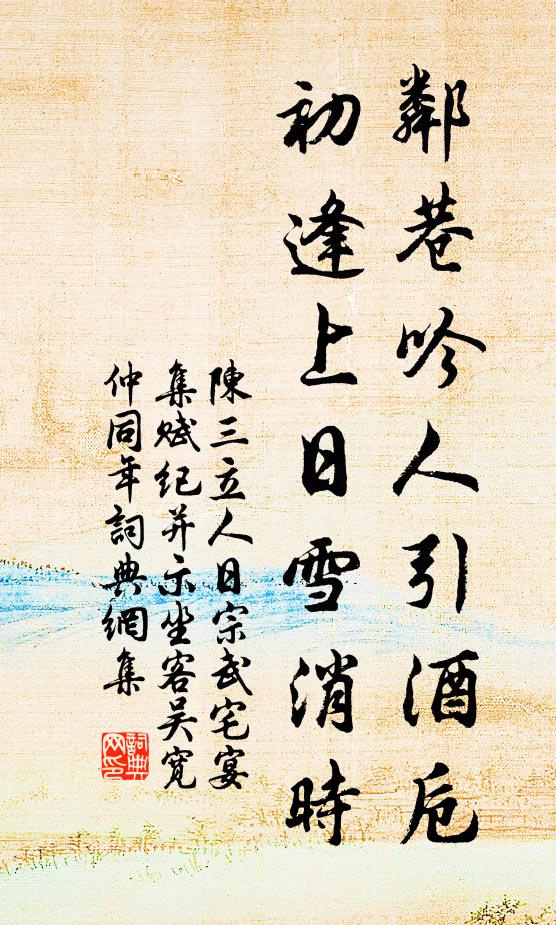 鄰巷吟人引酒卮
初逢上日雪消時
陳三立人日宗武宅宴
集賦紀并示坐客吳寬
仲同年詞典網集
詞典
网印